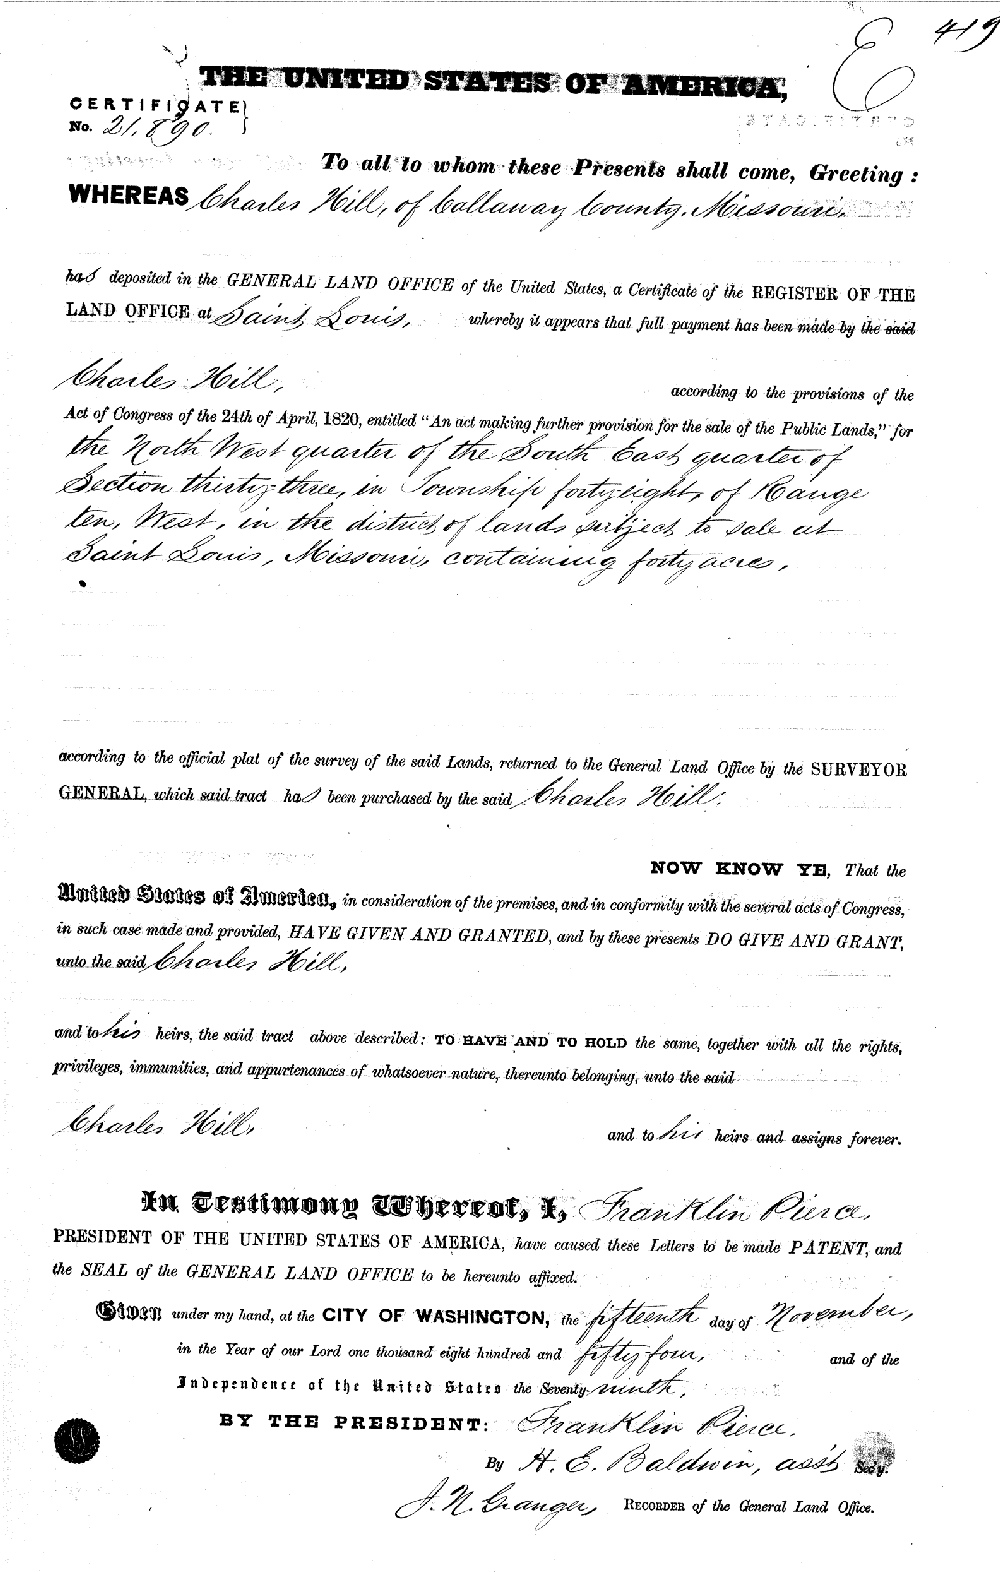 E 419
THE UNITED STATES OF AMERICA,
CERTIFICATE
No. 21.890.
To all to whom these Presents shall come, Greeting:
WHEREAS Charles Hill, of Callaway County, Missouri,
has deposited in the GENERAL LAND OFFICE of the United States, a Certificate of the REGISTER OF THE
LAND OFFICE at Saint Louis, whereby it appears that full payment has been made by the said
Charles Hill, according to the provisions of the
Act of Congress of the 24th of April, 1820, entitled "An act making further provision for the sale of the Public Lands," for
the North West quarter of the South East quarter of
Section thirty-three, in Township forty eight, of Range
ten, West, in the district of lands subject to sale at
Saint Louis, Missouri, containing forty acres,
according to the official plat of the survey of the said Lands, returned to the General Land Office by the SURVEYOR
GENERAL, which said tract has been purchased by the said Charles Hill.
NOW KNOW YE, That the
United States of America, in consideration of the premises, and in conformity with the several acts of Congress,
in such case made and provided, HAVE GIVEN AND GRANTED, and by these presents DO GIVE AND GRANT,
unto the said Charles Hill,
and to his heirs, the said tract above described: TO HAVE AND TO HOLD the same, together with all the rights,
privileges, immunities, and appurtenances of whatsoever nature, thereunto belonging, unto the said
Charles Hill, and to his heirs and assigns forever.
In Testimony Whereof, I, Franklin Pierce,
PRESIDENT OF THE UNITED STATES OF AMERICA, have caused these Letters to be made PATENT, and
the SEAL of the GENERAL LAND OFFICE to be hereunto affixed.
Given under my hand, at the CITY OF WASHINGTON, the fifteenth day of November,
in the Year of our Lord one thousand eight hundred and fifty four, and of the
Independence of the United States the Seventy-ninth.
BY THE PRESIDENT: Franklin Pierce.
By H. E. Baldwin, ass't Sec'y.
J. N. Granger, RECORDER of the General Land Office.